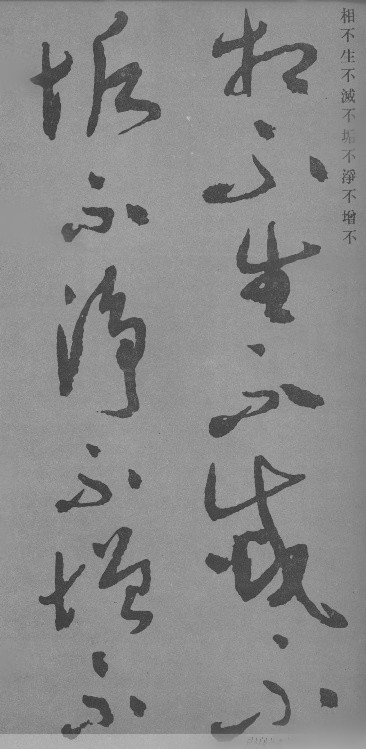 相不生不滅不垢不淨不增不
相不生不滅不
垢不淨不增不